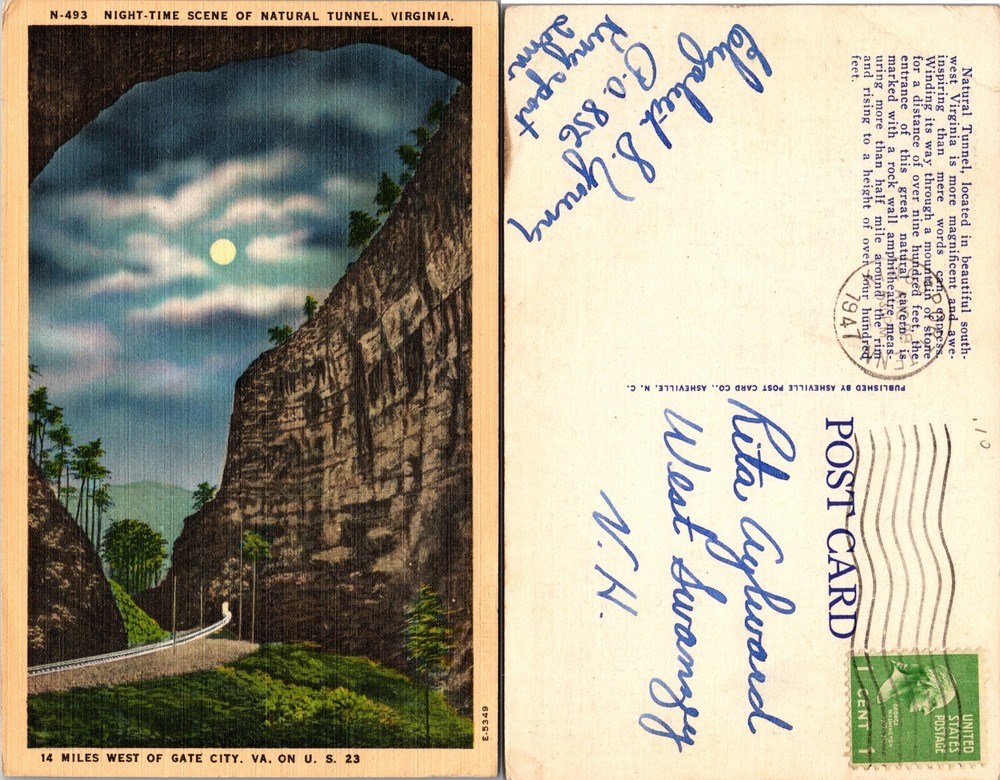 N-493 NIGHT-TIME SCENE OF NATURAL TUNNEL. VIRGINIA.
E-5349
14 MILES WEST OF GATE CITY. VA. ON U. S. 23
Natural Tunnel, located in beautiful south-
west Virginia is more magnificent and awe-
inspiring than mere words can express.
Winding its way through a mountain of stone
for a distance of over nine hundred feet, the
entrance of this great natural cavern is
marked with a rock wall amphitheatre meas-
uring more than half mile around the rim
and rising to a height of over four hundred
feet.
1947
Elizabeth S. Young
P.O. 856
Kingsport
Tenn.
PUBLISHED BY ASHEVILLE POST CARD CO., ASHEVILLE, N. C.
POST CARD
Rita Aylward
West Swanzey
N. H.
.10
UNITED
STATES
POSTAGE
GEORGE
WASHINGTON
1 CENT 1